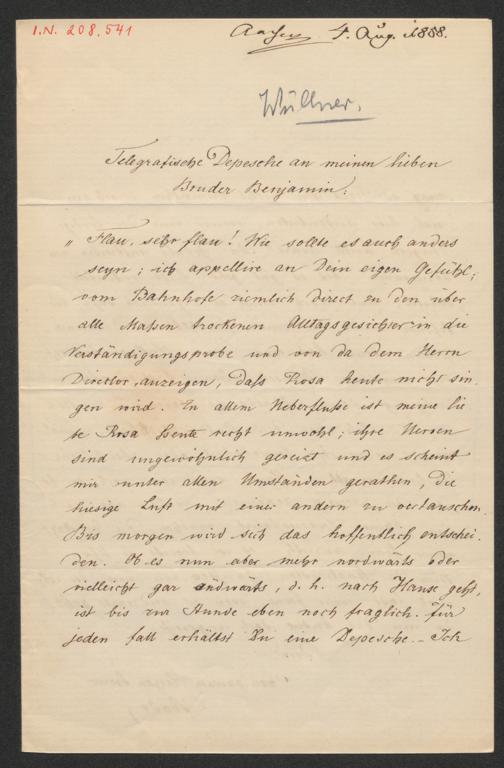 I.N. 208.541
Aachen 4. Aug. 1888.
Wüllner.
Telegrafische Depesche an meinen lieben
Bruder Benjamin:
„ Flau, sehr flau! Wie sollte es auch anders
seyn; ich appellire an Dein eigen Gefühl;
vom Bahnhofe ziemlich direct zu den über
alle Maßen trockenen Alltagsgesichter in die
Verständigungsprobe und von da dem Herrn
Director anzeigen, daß Rosa heute nicht sin-
gen wird. Zu allem Ueberfluße ist meine lie
be Rosa heute recht unwohl; ihre Nerven
sind ungewöhnlich gereizt und es scheint
mir unter allen Umständen gerathen, die
hiesige Luft mit einer andern zu vertauschen.
Bis morgen wird sich das hoffentlich entschei-
den. Ob es nun aber mehr nordwärts oder
vielleicht gar südwärts, d. h. nach Hause geht,
ist bis zur Stunde eben noch fraglich. Für
jeden Fall erhältst Du eine Depesche. – Ich